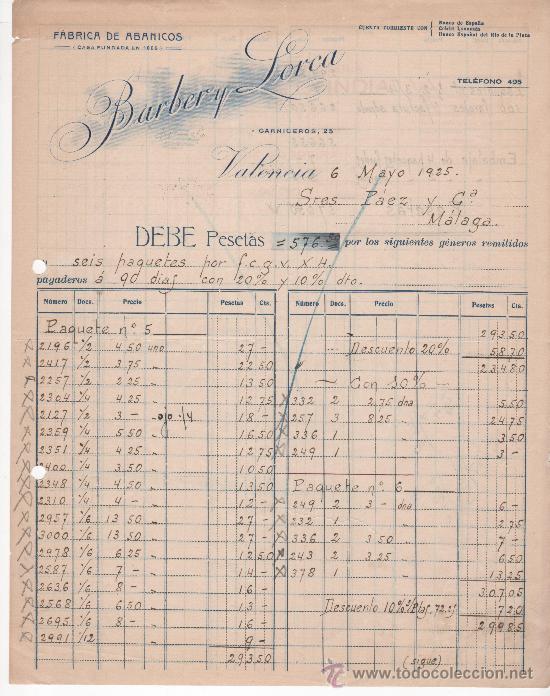 FÁBRICA DE ABANICOS
CUENTA CORRIENTE CON
Banco de España
Crédit Lyonnais
Banco Español del Río de la Plata
TELÉFONO 495
Barber y Lorca
CARNICEROS, 25
Valencia 6 Mayo 1925.
Sres Paez y Cª
Málaga
DEBE Pesetas =576 por los siguientes géneros remitidos
seis paquetes por f.c.g.v. X H.
pagaderos á 90 dias con 20% y 10% dto.
Número Docs. Precio Pesetas Cts.
Paquete nº 5
2196 1/2 4 50 uno 27 -
2417 1/2 3 75 " 22 50
2257 1/2 2 25 " 13 50
2304 1/4 4 25 " 12 75
2127 1/2 3 - 18 -
2359 1/4 5 50 " 16 50
2351 1/4 4 25 " 12 75
2400 1/4 3 50 " 10 50
2348 1/4 4 50 " 13 50
2310 1/4 4 - " 12 -
2957 1/6 13 50 " 27 -
3000 1/6 13 50 " 27 -
2978 1/6 6 25 " 12 50
2587 1/6 7 - " 14 -
2636 1/6 8 - " 16 -
2568 1/6 6 50 " 13 -
2695 1/6 8 - " 16 -
2991 1/12 9 -
293 50
Número Docs. Precio Pesetas Cts.
293 50
Descuento 20% 58 70
234 80
Con 10%
332 2 2.75 dna 5 50
257 3 8.25 " 24 75
336 1 " 3 50
249 1 " 3 -
Paquete nº 6
249 2 3 - dna 6 -
232 1 " 2 75
336 2 3 50 " 7 -
243 2 3.25 " 6 50
378 1 " 13 25
307 05
Descuento 10% 7 20
299 85
(sigue)
todocoleccion.net